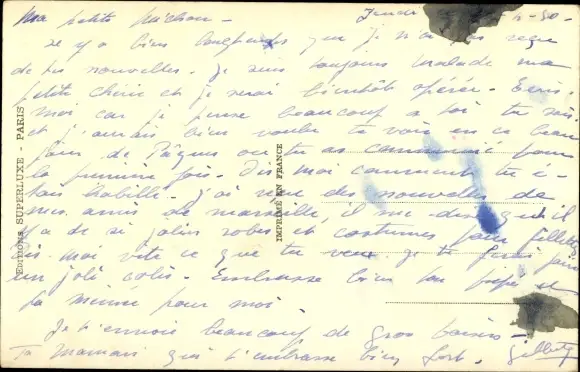 Ma petite Michou -
Jeudi -50-
Il y a bien longtemps que je n'ai pas reçu
de tes nouvelles. Je suis toujours malade ma
petite chérie et je serai bientôt opérée. Ecris
moi car je pense beaucoup à toi tu sais
et j'aurais bien voulu te voir en ce beau
jour de Pâques où tu as communié pour
la première fois. Dis moi comment tu é-
tais habillé. J'ai des nouvelles de
mes amis de Marseille, il me dit qu'il
y a de si jolies robes et costumes pour fillettes
dis moi vite ce que tu veux je te ferai faire
un joli colis. Embrasse bien ton pépé et
ta mémé pour moi.
Je t'envoie beaucoup de gros baisers -
Ta Maman qui t'embrasse bien fort.
EDITIONS SUPERLUXE - PARIS
IMPRIMÉ EN FRANCE